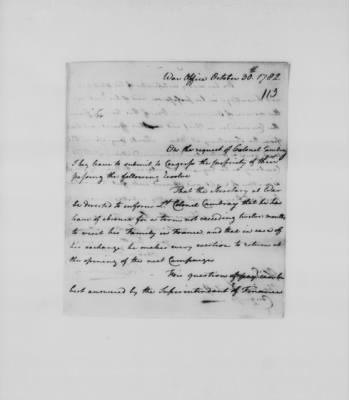 War Office October 30th 1782
113
On the request of Colonel Cambray
I beg leave to submit to Congress the propriety of their
passing the following Resolve
That the Secretary at War
be directed to inform Lt Colonel Cambray that he has
leave of absence for a term not exceeding twelve months
to visit his Family in France and that in case of
his exchange he makes every exertion to return at
the opening of the next Campaign
The questions of pay can be
best answered by the Superintendant of Finance